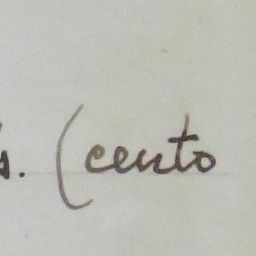 s. (cento